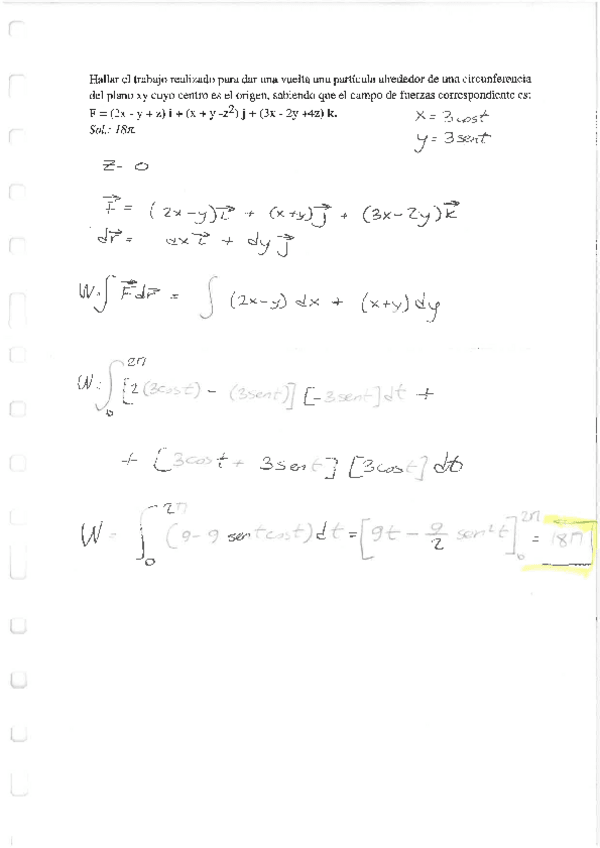 Hallar el trabajo realizado para dar una vuelta una partícula alrededor de una circunferencia
del plano xy cuyo centro es el origen, sabiendo que el campo de fuerzas correspondiente es:
F = (2x - y + z) i + (x + y -z²) j + (3x - 2y +4z) k.
Sol.: 18π
x = 3cost
y = 3sent
Z- 0
F⃗ = (2x-y)i⃗ + (x+y)j⃗ + (3x-2y)k⃗
dr⃗ = dx i⃗ + dy j⃗
W=∫ F⃗ dr⃗ = ∫ (2x-y) dx + (x+y) dy
W= ∫₀^2π [2(3cost) - (3sent)] [-3sent] dt +
+ [3cost + 3sent] [3cost] dt
W = ∫₀^2π (9-9 sentcost) dt = [9t - 9/2 sen²t]₀^2π = 18π